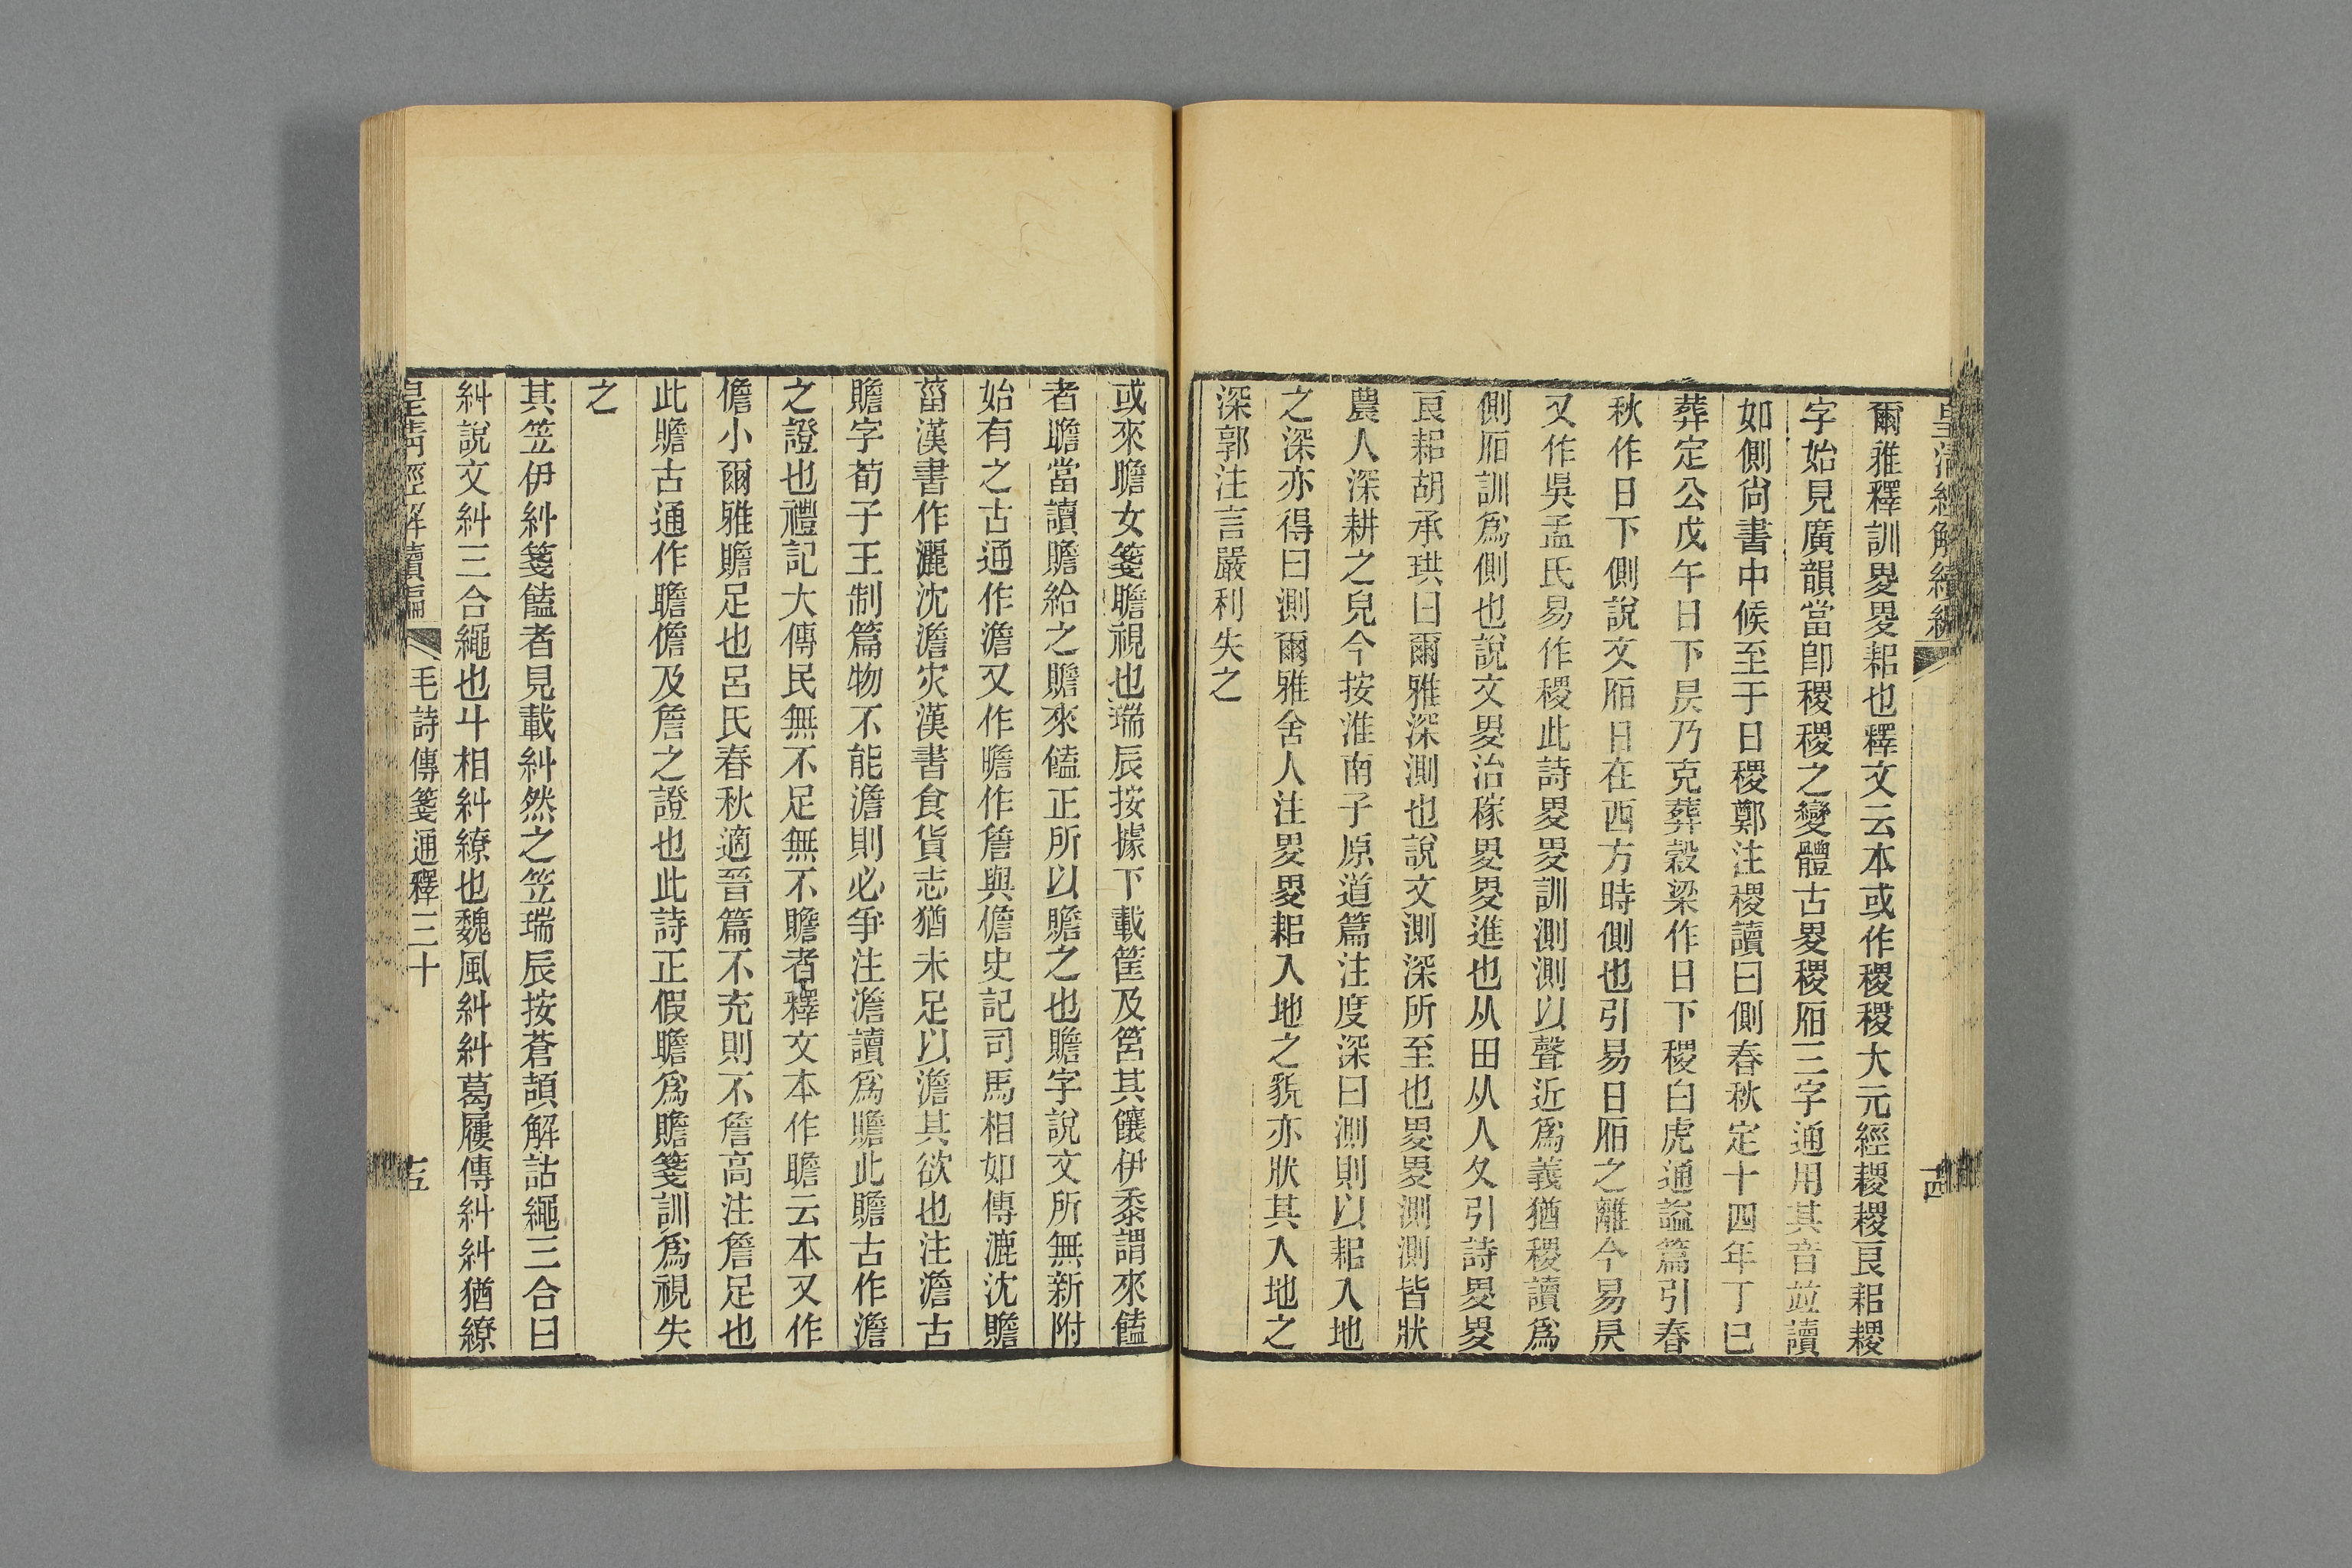 皇清經解續編
十四
爾雅釋訓畟畟耜也釋文云本或作稷稷大元經耰耰良耜稷
字始見廣韻當卽稷稷之變體古畟稷𣅔三字通用其音竝讀
如側尙書中候至于日稷鄭注稷讀曰側春秋定十四年丁巳
葬定公戊午日下昃乃克葬穀梁作日下稷白虎通諡篇引春
秋作日下側說文𣅔日在西方時側也引易日𣅔之離今易昃
又作吳孟氏易作稷此詩畟畟訓測測以聲近爲義猶稷讀爲
側𣅔訓爲側也說文畟治稼畟畟進也从田从人夂引詩畟畟
良耜胡承珙曰爾雅深測也說文測深所至也畟畟測測皆狀
農人深耕之皃今按淮南子原道篇注度深曰測則以耜入地
之深亦得曰測爾雅舍人注畟畟耜入地之貌亦狀其入地之
深郭注言嚴利失之
或來瞻女箋瞻視也瑞辰按據下載筐及筥其饟伊黍謂來饁
者瞻當讀贍給之贍來饁正所以贍之也贍字說文所無新附
始有之古通作澹又作瞻作詹與儋史記司馬相如傳漉沈贍
菑漢書作灑沈澹灾漢書食貨志猶未足以澹其欲也注澹古
贍字荀子王制篇物不能澹則必爭注澹讀爲贍此贍古作澹
之證也禮記大傳民無不足無不贍者釋文本作瞻云本又作
儋小爾雅贍足也呂氏春秋適音篇不充則不詹高注詹足也
此贍古通作瞻儋及詹之證也此詩正假瞻爲贍箋訓爲視失
之
其笠伊糾箋饁者見載糾然之笠瑞辰按蒼頡解詁繩三合曰
糾說文糾三合繩也丩相糾繚也魏風糾糾葛屨傳糾糾猶繚
皇清經解續編
毛詩傳箋通釋三十
十五